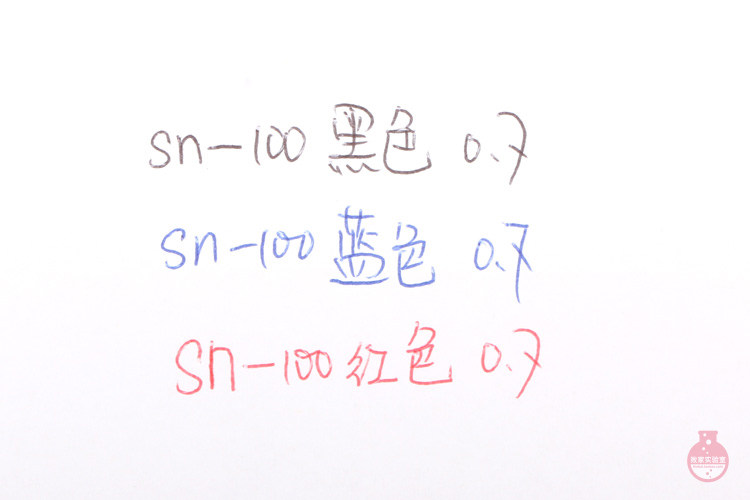 sn-100 黑色 0.7
sn-100 蓝色 0.7
sn-100 红色 0.7